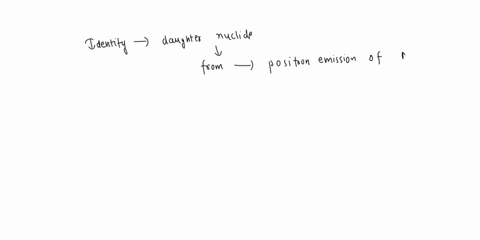 Identity → daughter nuclide
↓
from → position emission of